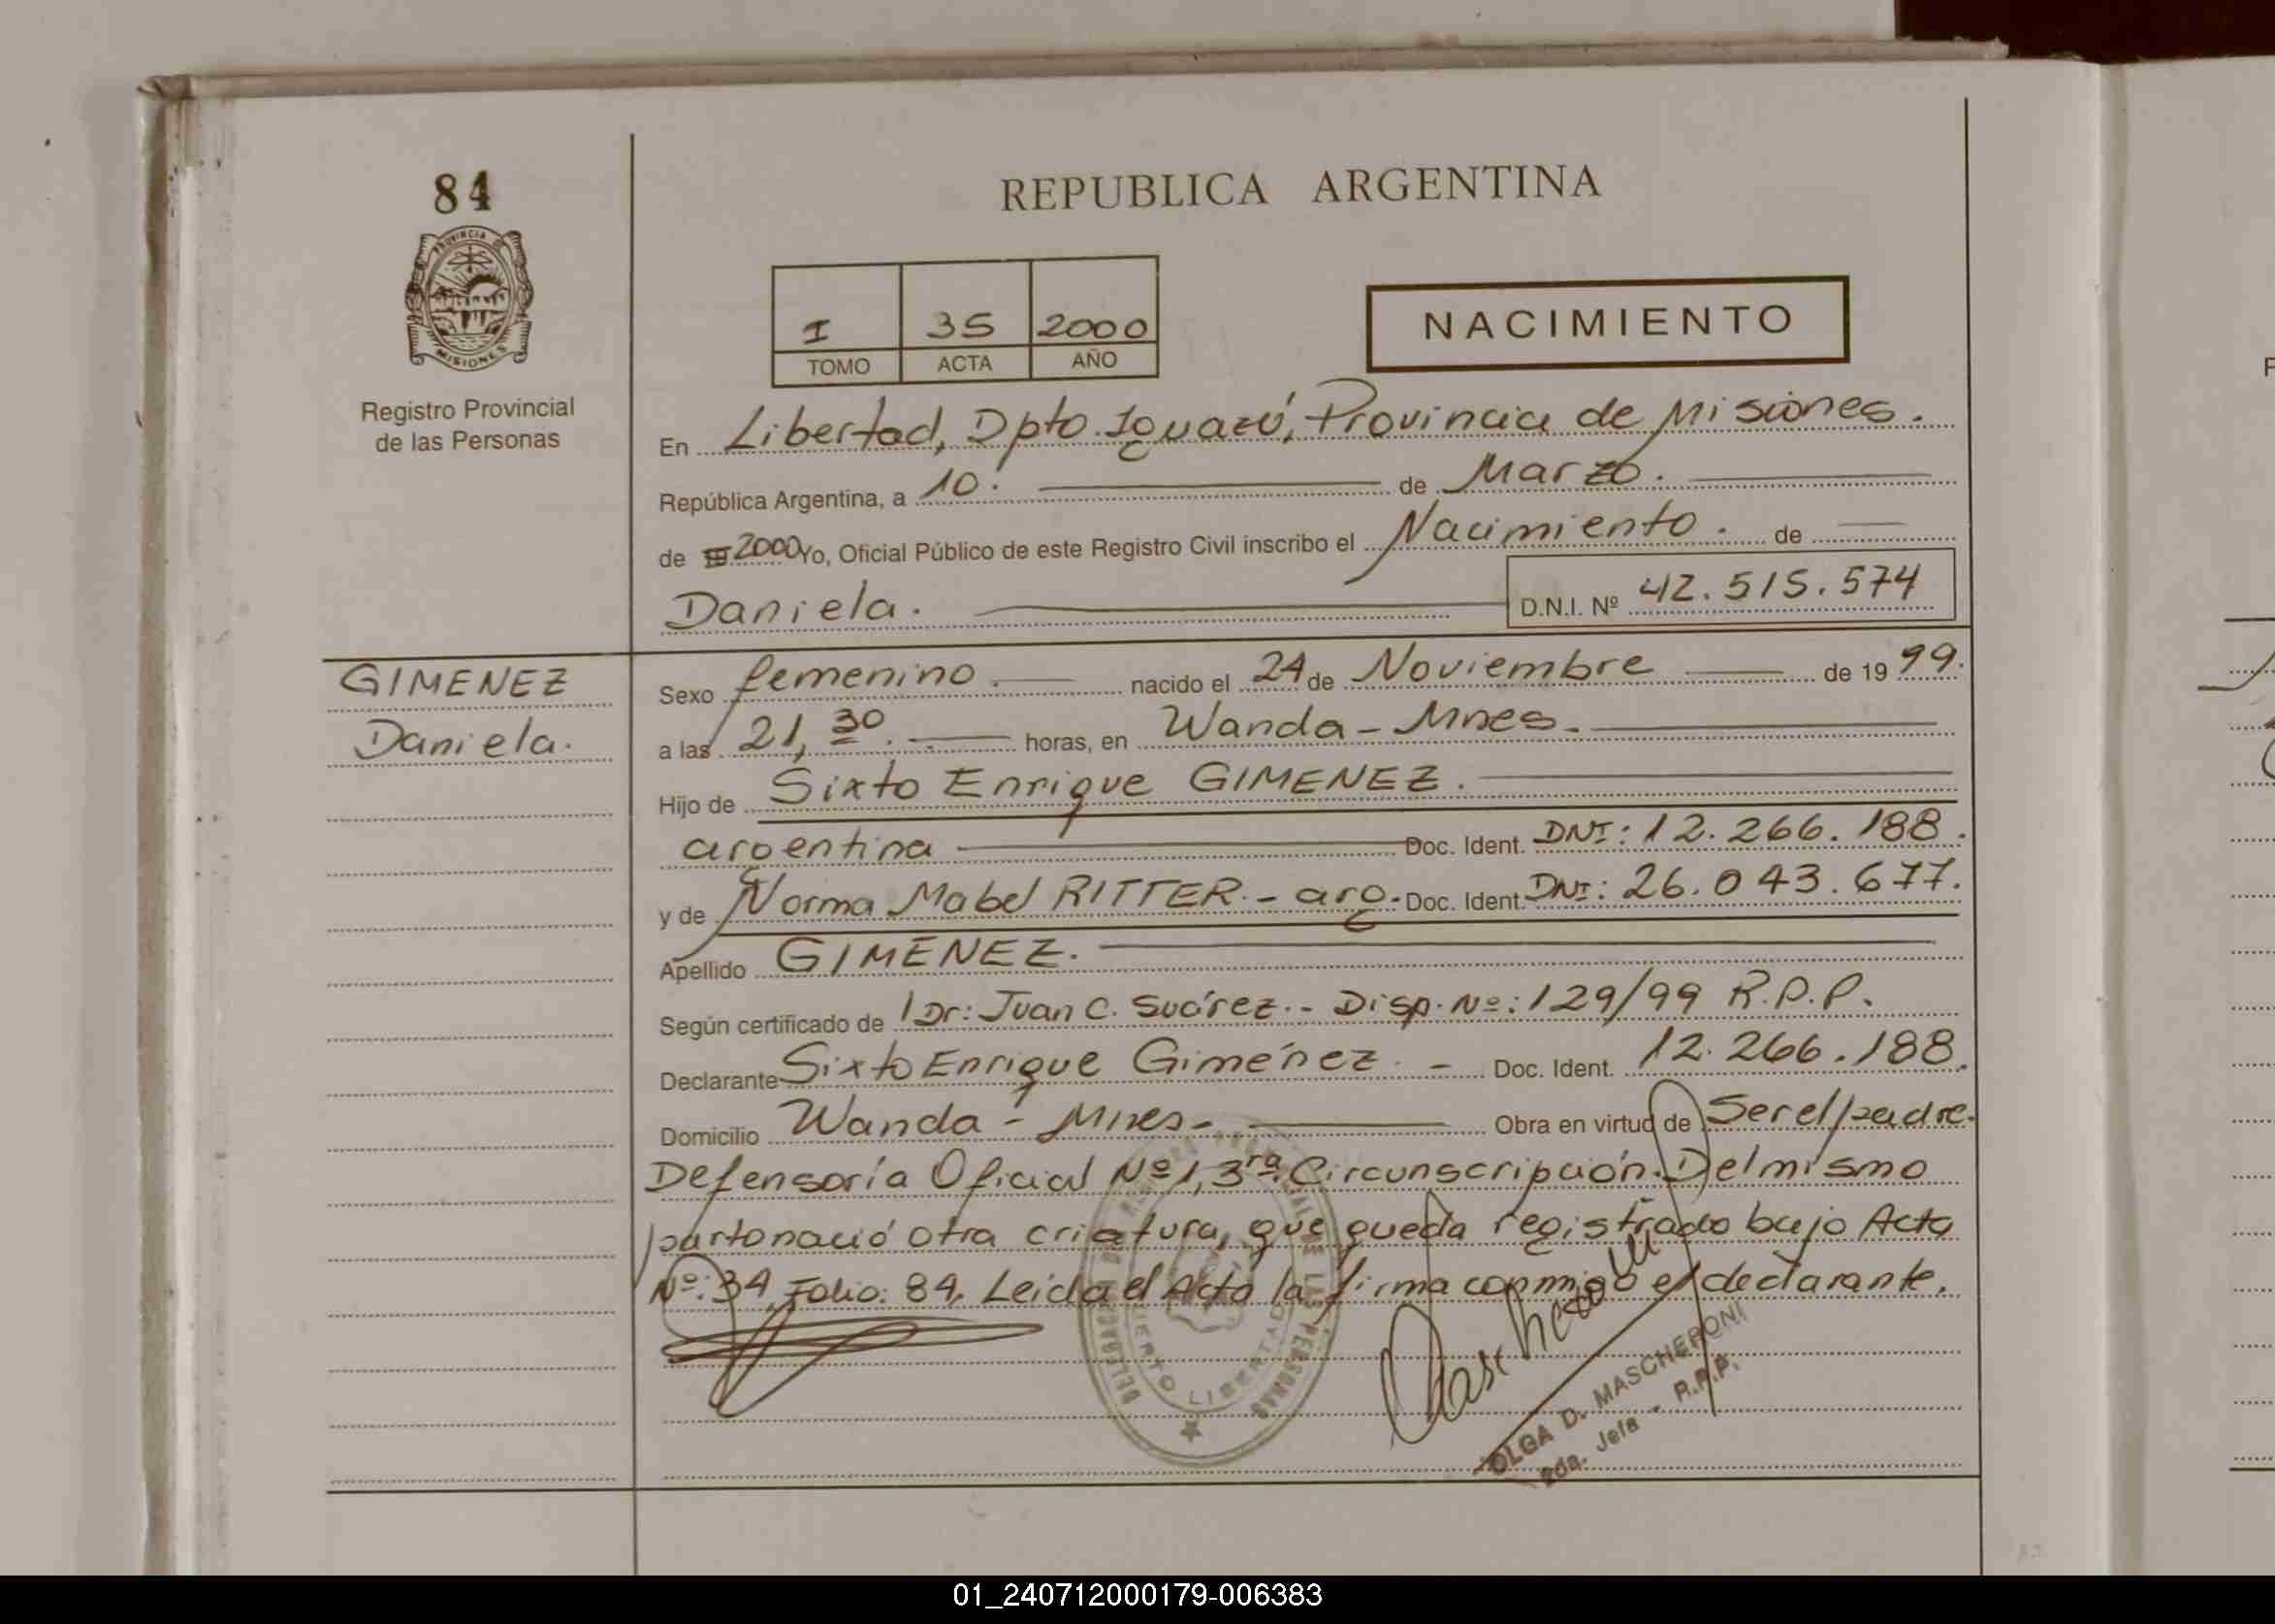 84
PROVINCIA DE
MISIONES
Registro Provincial
de las Personas
REPUBLICA ARGENTINA
I 35 2000
TOMO ACTA AÑO
NACIMIENTO
En Libertad, Dpto. Iguazú, Provincia de Misiones.
República Argentina, a 10. de Marzo.
de 2000 Yo, Oficial Público de este Registro Civil inscribo el Nacimiento. de
Daniela. D.N.I. Nº 42.515.574
GIMENEZ
Daniela.
Sexo femenino. nacido el 24 de Noviembre de 19 99.
a las 21,30. horas, en Wanda - Mnes.
Hijo de Sixto Enrique GIMENEZ.
argentina Doc. Ident. DNI: 12.266.188.
y de Norma Mabel RITTER. - arg. Doc. Ident. DNI: 26.043.677.
Apellido GIMENEZ.
Según certificado de Dr: Juan C. Suárez. - Disp. Nº: 129/99 R.P.P.
Declarante Sixto Enrique Giménez. - Doc. Ident. 12.266.188.
Domicilio Wanda - Mnes - Obra en virtud de Ser el padre.
Defensoría Oficial Nº 1, 3ra. Circunscripción. Del mismo
parto nació otra criatura, que queda registrado bajo Acta
Nº: 34, Folio: 84. Leida el Acta la firma conmigo el declarante.
OLGA D. MASCHERONI
2da. Jefa - R.P.P.
01_240712000179-006383